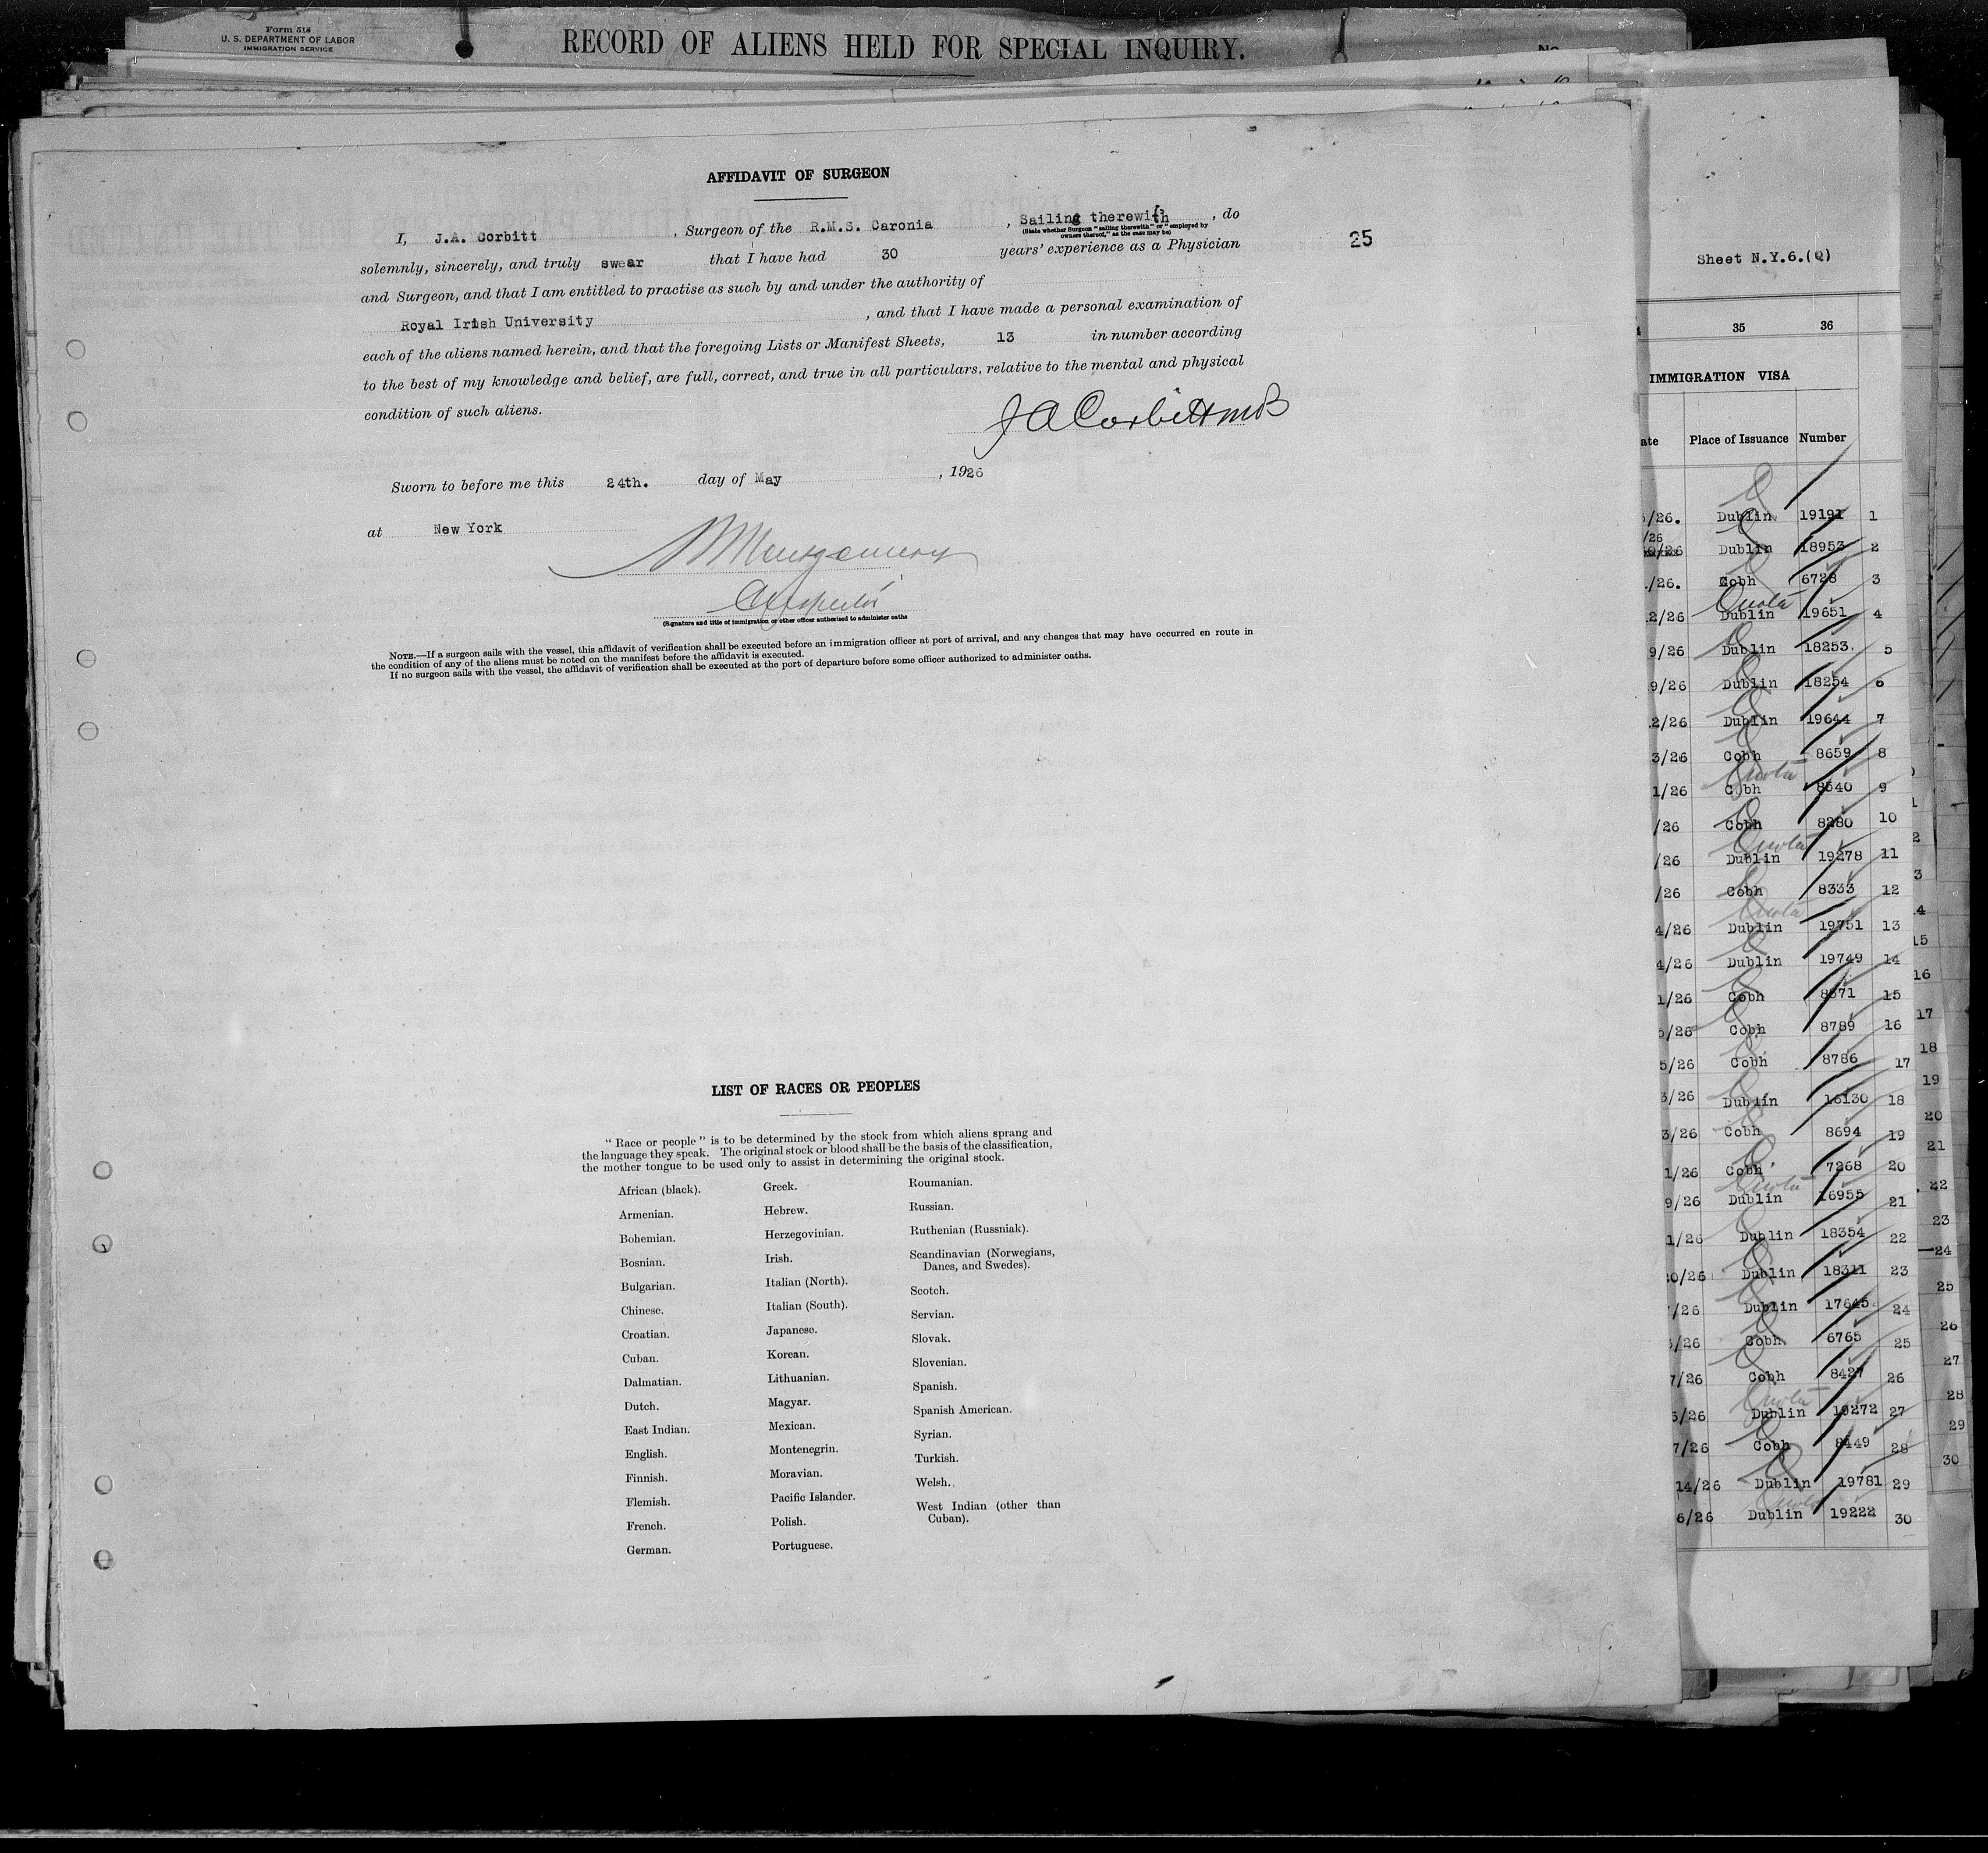 Form 518
U. S. DEPARTMENT OF LABOR
IMMIGRATION SERVICE
RECORD OF ALIENS HELD FOR SPECIAL INQUIRY.
No.
AFFIDAVIT OF SURGEON
I, J.A. Corbitt, Surgeon of the R.M.S. Caronia, Sailing therewith, do
(State whether Surgeon "sailing therewith" or "employed by
owners thereof," as the case may be)
solemnly, sincerely, and truly swear that I have had 30 years' experience as a Physician
and Surgeon, and that I am entitled to practise as such by and under the authority of
Royal Irish University, and that I have made a personal examination of
each of the aliens named herein, and that the foregoing Lists or Manifest Sheets, 13 in number according
to the best of my knowledge and belief, are full, correct, and true in all particulars, relative to the mental and physical
condition of such aliens.
J A Corbitt MB
Sworn to before me this 24th. day of May, 1926
at New York
Montgomery
Inspector
(Signature and title of immigration or other officer authorized to administer oaths
NOTE.—If a surgeon sails with the vessel, this affidavit of verification shall be executed before an immigration officer at port of arrival, and any changes that may have occurred en route in
the condition of any of the aliens must be noted on the manifest before the affidavit is executed.
If no surgeon sails with the vessel, the affidavit of verification shall be executed at the port of departure before some officer authorized to administer oaths.
25
LIST OF RACES OR PEOPLES
"Race or people" is to be determined by the stock from which aliens sprang and
the language they speak. The original stock or blood shall be the basis of the classification,
the mother tongue to be used only to assist in determining the original stock.
African (black).
Armenian.
Bohemian.
Bosnian.
Bulgarian.
Chinese.
Croatian.
Cuban.
Dalmatian.
Dutch.
East Indian.
English.
Finnish.
Flemish.
French.
German.
Greek.
Hebrew.
Herzegovinian.
Irish.
Italian (North).
Italian (South).
Japanese.
Korean.
Lithuanian.
Magyar.
Mexican.
Montenegrin.
Moravian.
Pacific Islander.
Polish.
Portuguese.
Roumanian.
Russian.
Ruthenian (Russniak).
Scandinavian (Norwegians,
Danes, and Swedes).
Scotch.
Servian.
Slovak.
Slovenian.
Spanish.
Spanish American.
Syrian.
Turkish.
Welsh.
West Indian (other than
Cuban).
Sheet N.Y.6.(Q)
35 36
IMMIGRATION VISA
ate Place of Issuance Number
/26. Dublin 19191 1
/26 Dublin 18953 2
/26. Cobh 6728 3
Quota
2/26 Dublin 19651 4
9/26 Dublin 18253 5
9/26 Dublin 18254 6
2/26 Dublin 19644 7
3/26 Cobh 8659 8
Quota
1/26 Cobh 8540 9
/26 Cobh 8280 10
Quota
/26 Dublin 19278 11
/26 Cobh 8333 12
Quota
4/26 Dublin 19751 13
4/26 Dublin 19749 14
1/26 Cobh 8571 15
5/26 Cobh 8789 16
5/26 Cobh 8786 17
3/26 Dublin 16130 18
3/26 Cobh 8694 19
1/26 Cobh 7268 20
Quota
9/26 Dublin 16955 21
1/26 Dublin 18354 22
0/26 Dublin 18311 23
/26 Dublin 17645 24
/26 Cobh 6765 25
7/26 Cobh 8427 26
Quota
5/26 Dublin 19272 27
7/26 Cobh 8449 28
14/26 Dublin 19781 29
Quota
6/26 Dublin 19222 30
1
2
3
4
15
16
17
18
19
20
21
22
23
24
25
26
27
28
29
30